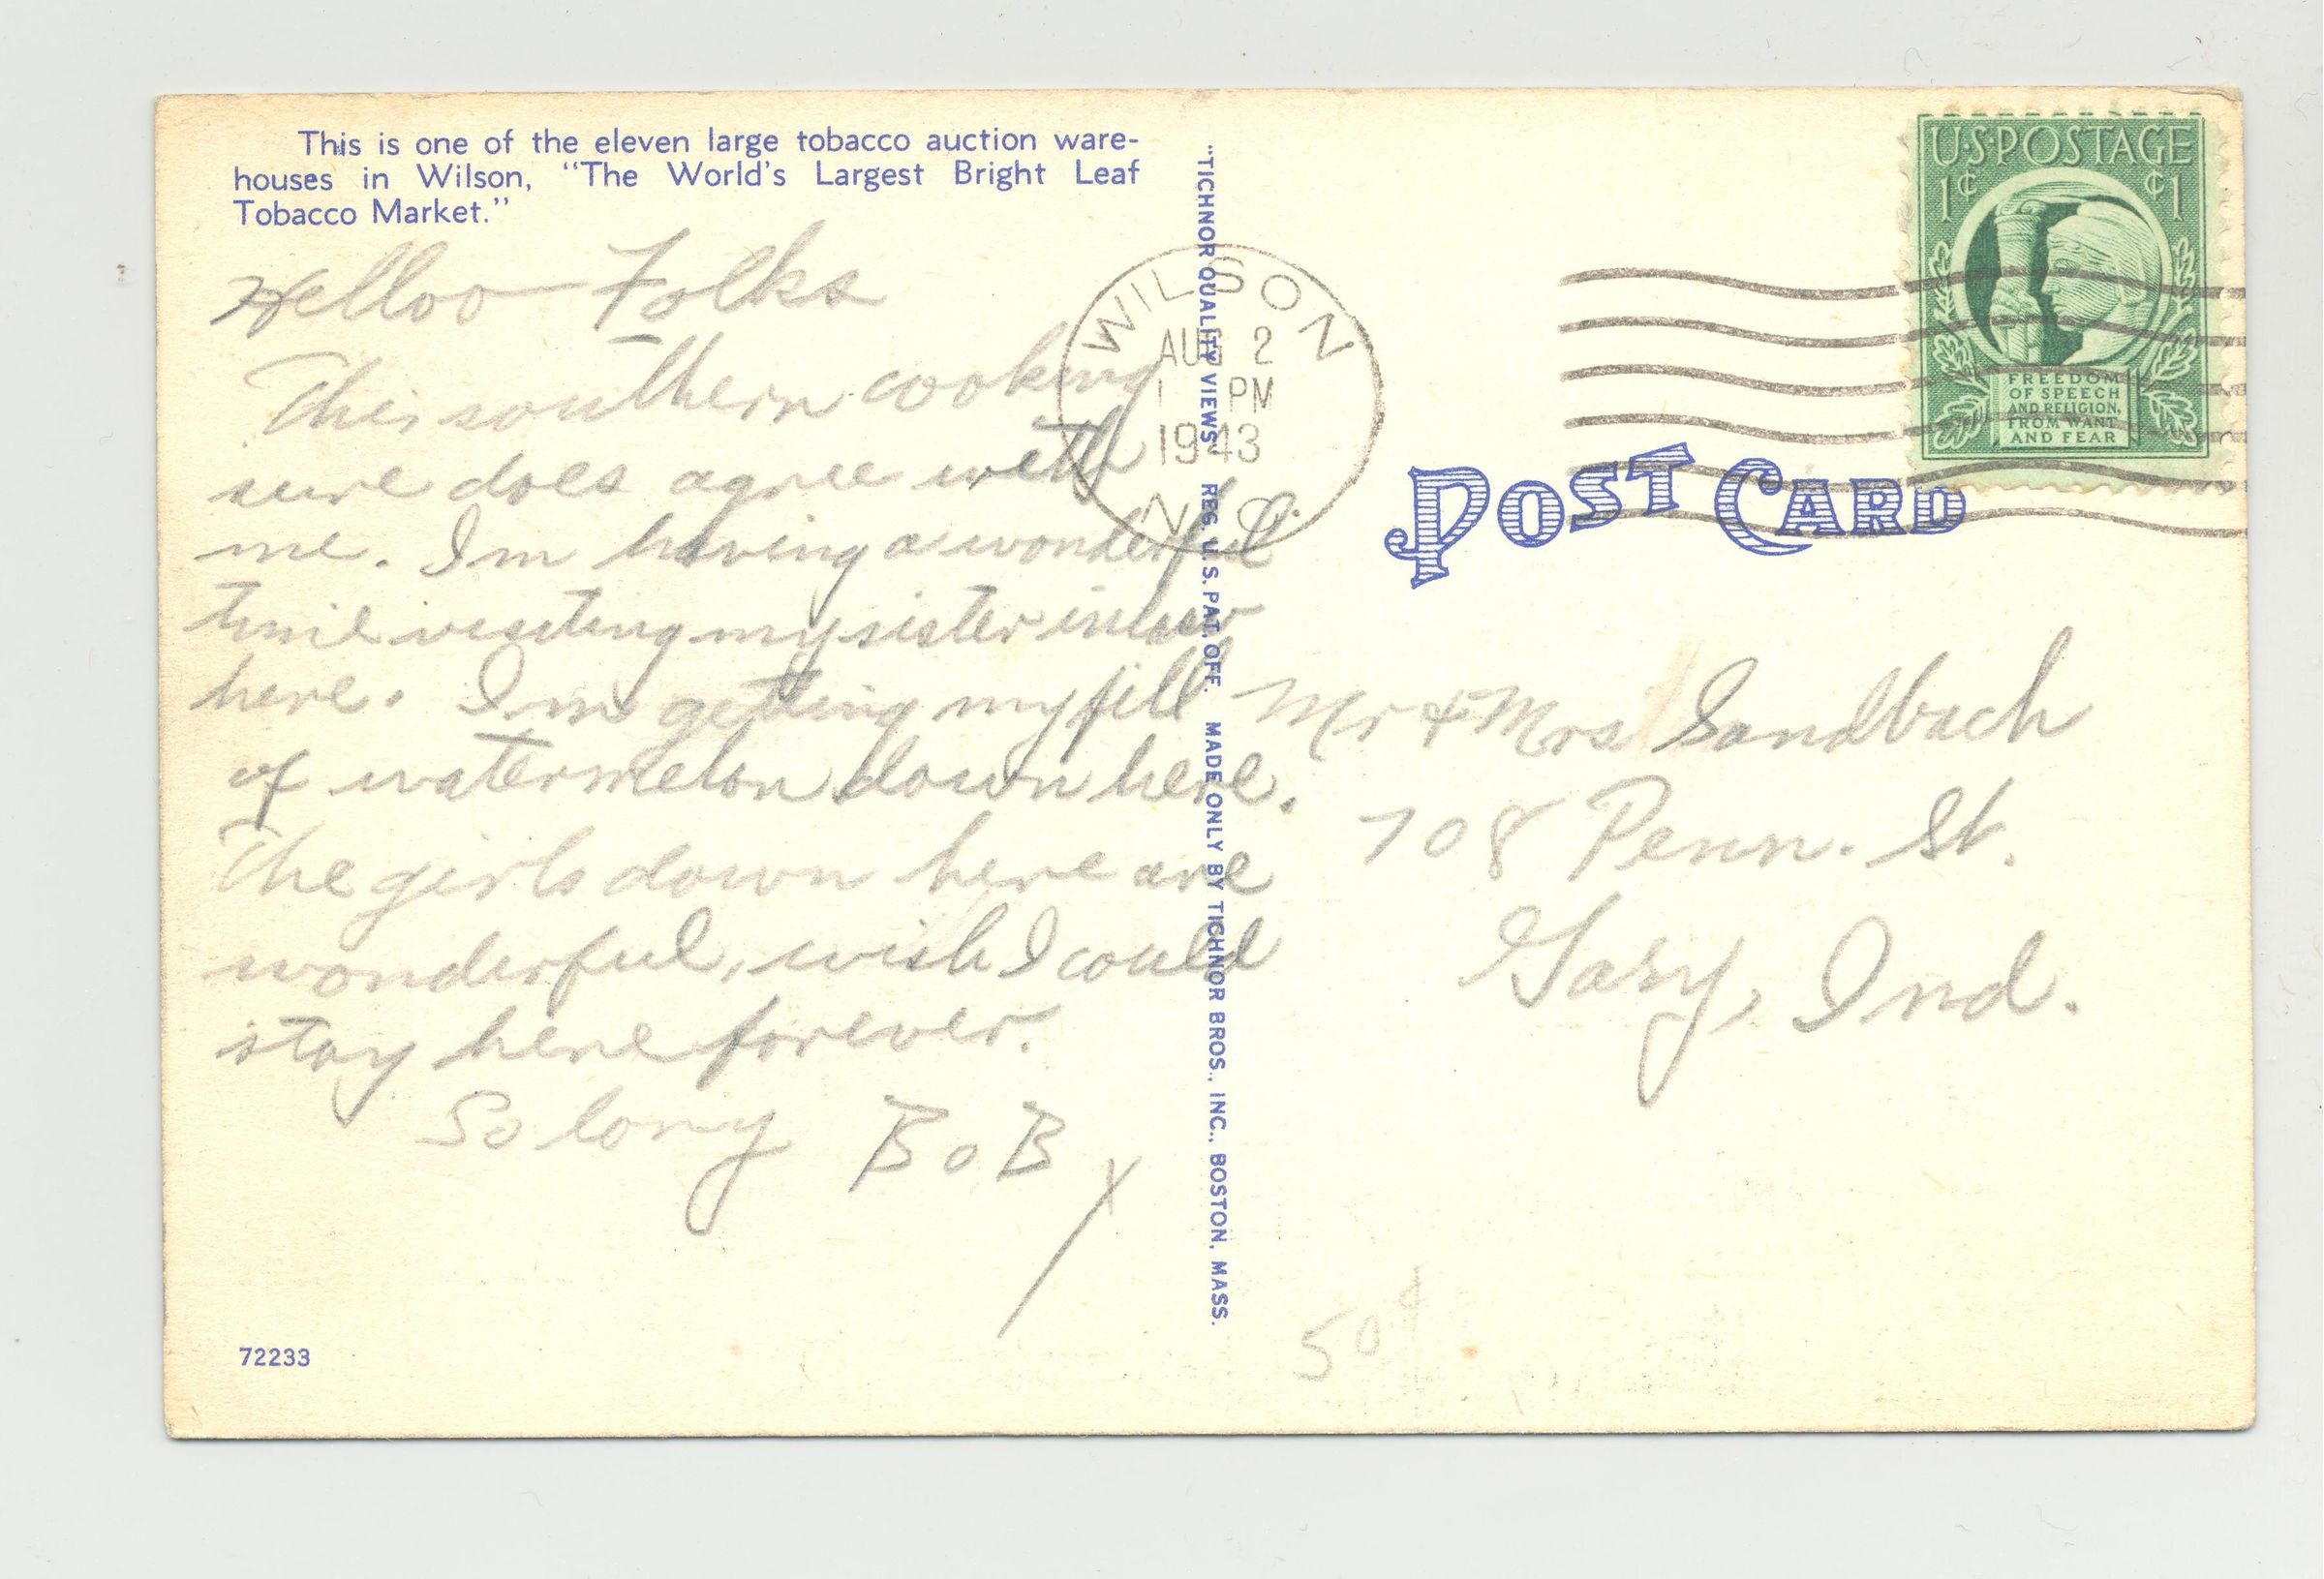 This is one of the eleven large tobacco auction ware-
houses in Wilson, "The World's Largest Bright Leaf
Tobacco Market."
Helloo Folks
This southern cooking
sure does agree with
me. Im having a wonderful
time visiting my sister inlaw
here. Im getting my fill
of watermelon down here.
The girls down here are
wonderful, wish I could
stay here forever.
So long BoB
72233
"TICHNOR QUALITY VIEWS" REG. U. S. PAT. OFF. MADE ONLY BY TICHNOR BROS., INC., BOSTON, MASS.
WILSON
AUG 2
1 PM
1943
N.C.
U.S. POSTAGE
1¢ ¢1
FREEDOM
OF SPEECH
AND RELIGION,
FROM WANT
AND FEAR
POST CARD
Mr & Mrs Sandbach
708 Penn. St.
Gary, Ind.
50¢